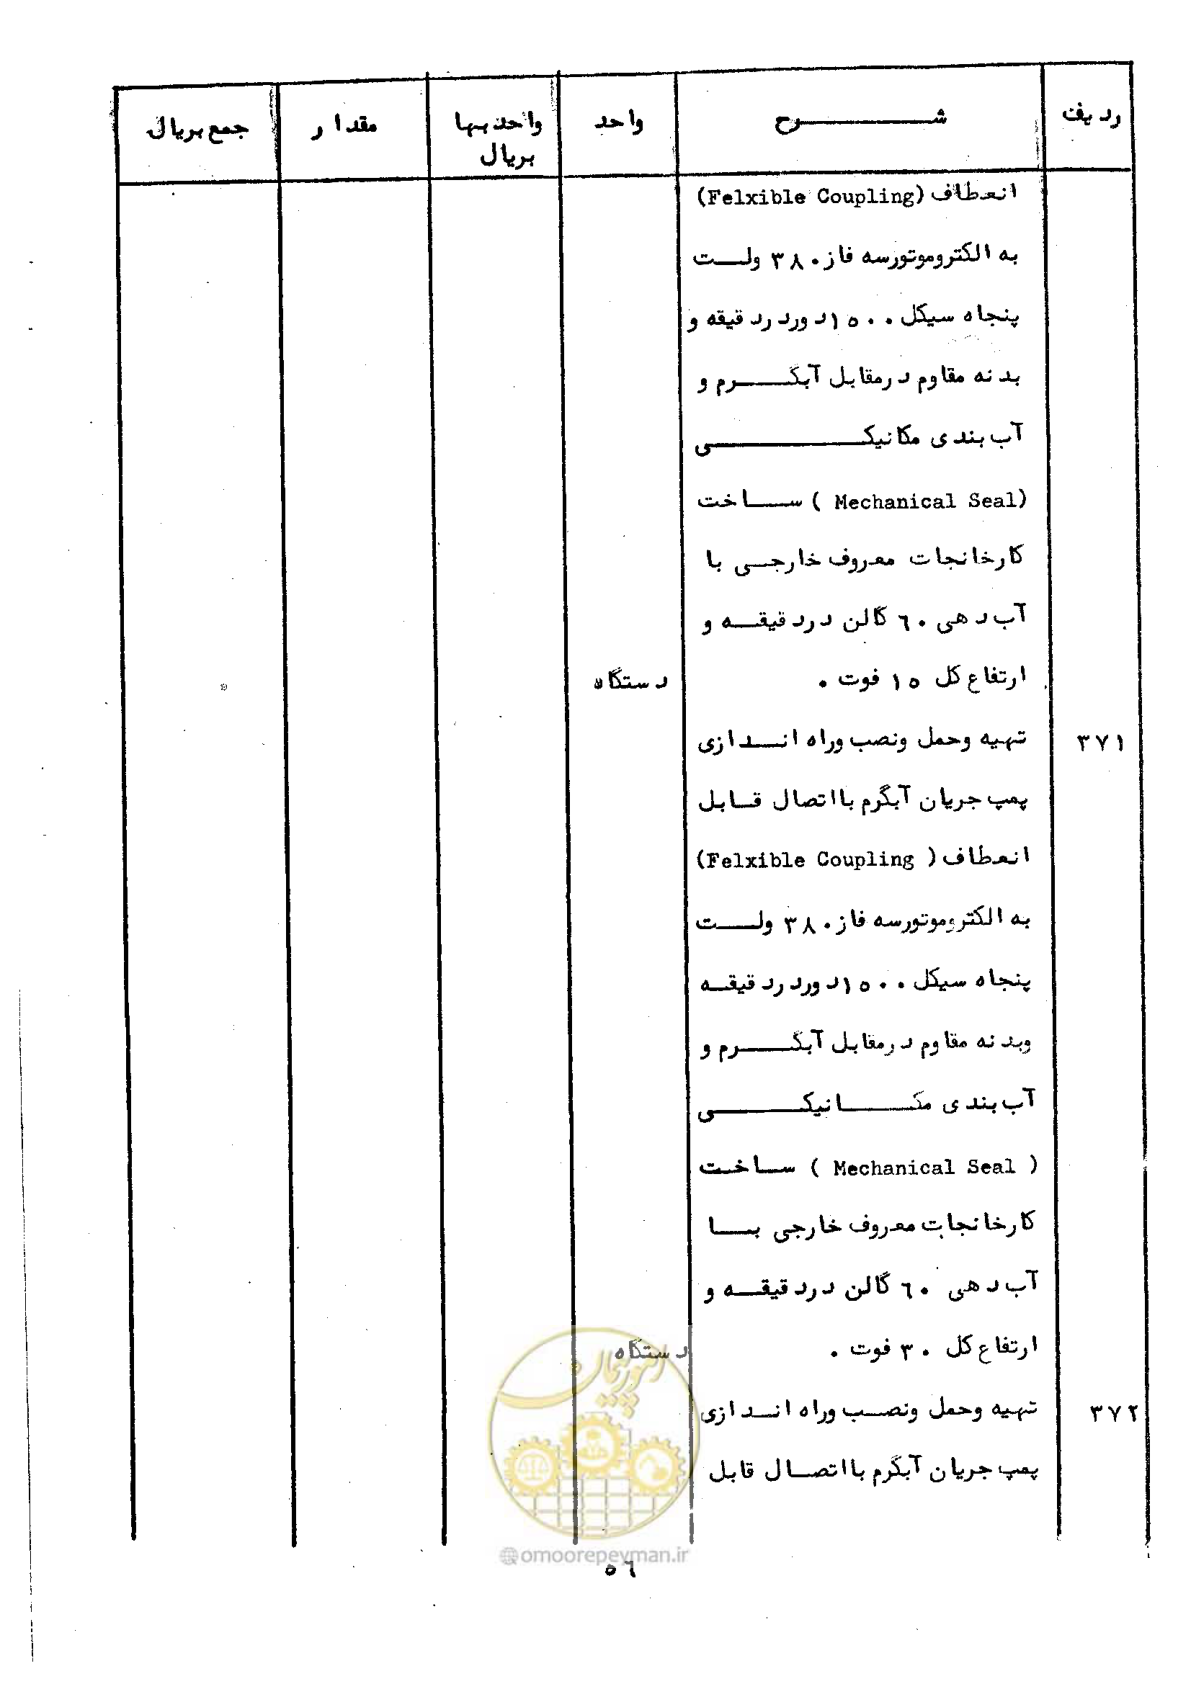 ردیف شرح واحد واحدبها مقدار جمع بریال
بریال
انعطاف (Felxible Coupling)
به الکتروموتورسه فاز ۳۸۰ ولت
پنجاه سیکل ۱۵۰۰ دور در دقیقه و
بدنه مقاوم در مقابل آبگرم و
آب بندی مکانیکی
(Mechanical Seal) ساخت
کارخانجات معروف خارجی با
آب دهی ۶۰ گالن در دقیقه و
ارتفاع کل ۱۵ فوت . دستگاه
۳۷۱ تهیه وحمل ونصب وراه اندازی
پمپ جریان آبگرم بااتصال قابل
انعطاف (Felxible Coupling)
به الکتروموتورسه فاز ۳۸۰ ولت
پنجاه سیکل ۱۵۰۰ دور در دقیقه
وبدنه مقاوم در مقابل آبگرم و
آب بندی مکانیکی
(Mechanical Seal) ساخت
کارخانجات معروف خارجی با
آب دهی ۶۰ گالن در دقیقه و
ارتفاع کل ۳۰ فوت . دستگاه
۳۷۲ تهیه وحمل ونصب وراه اندازی
پمپ جریان آبگرم بااتصال قابل
امور پیمان
@omoorepeyman.ir
۵۶